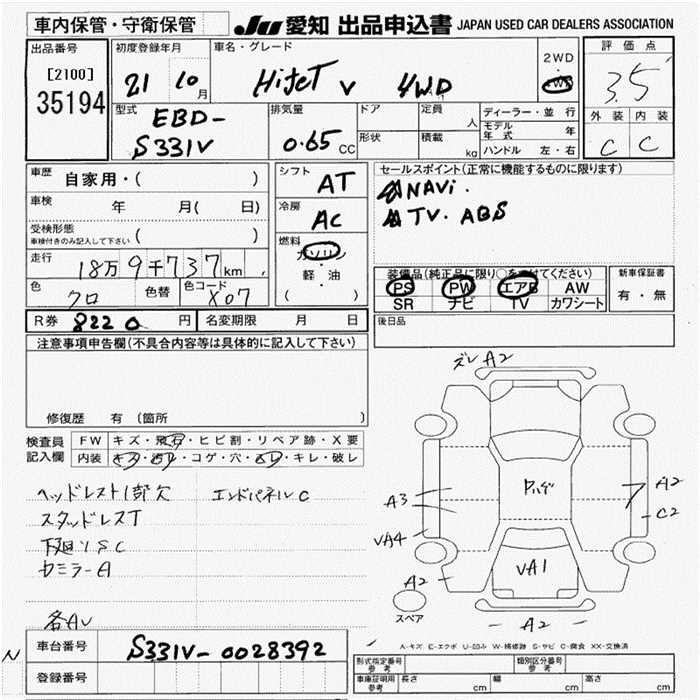 車内保管・守衛保管
JU 愛知 出品申込書 JAPAN USED CAR DEALERS ASSOCIATION
出品番号
[2100]
35194
初度登録年月
21 10月
車名・グレード
HiJET V 4WD
2WD
4WD
評価点
3.5
外装 内装
C C
型式
EBD-
S331V
排気量
0.65 CC
ドア
形状
定員 人
積載 kg
ディーラー・並行
モデル年式 年
ハンドル 左・右
車歴
自家用・( )
車検 年 月( 日)
受検形態
車検付きのみ記入して下さい ( )
走行
18万9千737km
色 クロ 色替 色コード X07
シフト
AT
冷房
AC
燃料
ガソリン
・
軽・油
( )
セールスポイント(正常に機能するものに限ります)
NAVi.
TV. ABS
装備品(純正品に限り○をつけてください)
PS PW エアB AW
SR ナビ TV カワシート
新車保証書
有・無
R券 8220 円 名変期限 月 日
後日品
注意事項申告欄(不具合内容等は具体的に記入して下さい)
修復歴 有 (箇所 )
検査員
記入欄
FW キズ・飛石・ヒビ割・リペア跡・X要
内装 キズ・汚レ・コゲ・穴・スレ・キレ・破レ
ヘッドレスト1部欠 エンドパネルC
スタッドレスT
下廻りSC
ミラーA
各AU
ズレA2
A3
VA4
A2
A2
C2
VA1
A2
スペア
A-キズ E-エクボ U-凹み W-補修跡 S-サビ C-腐食 XX-交換済
N
車台番号 S331V-0028392
登録番号
形式指定番号 参考
類別区分番号 参考
車庫証明用 参考 長さ cm 幅 cm 高さ cm